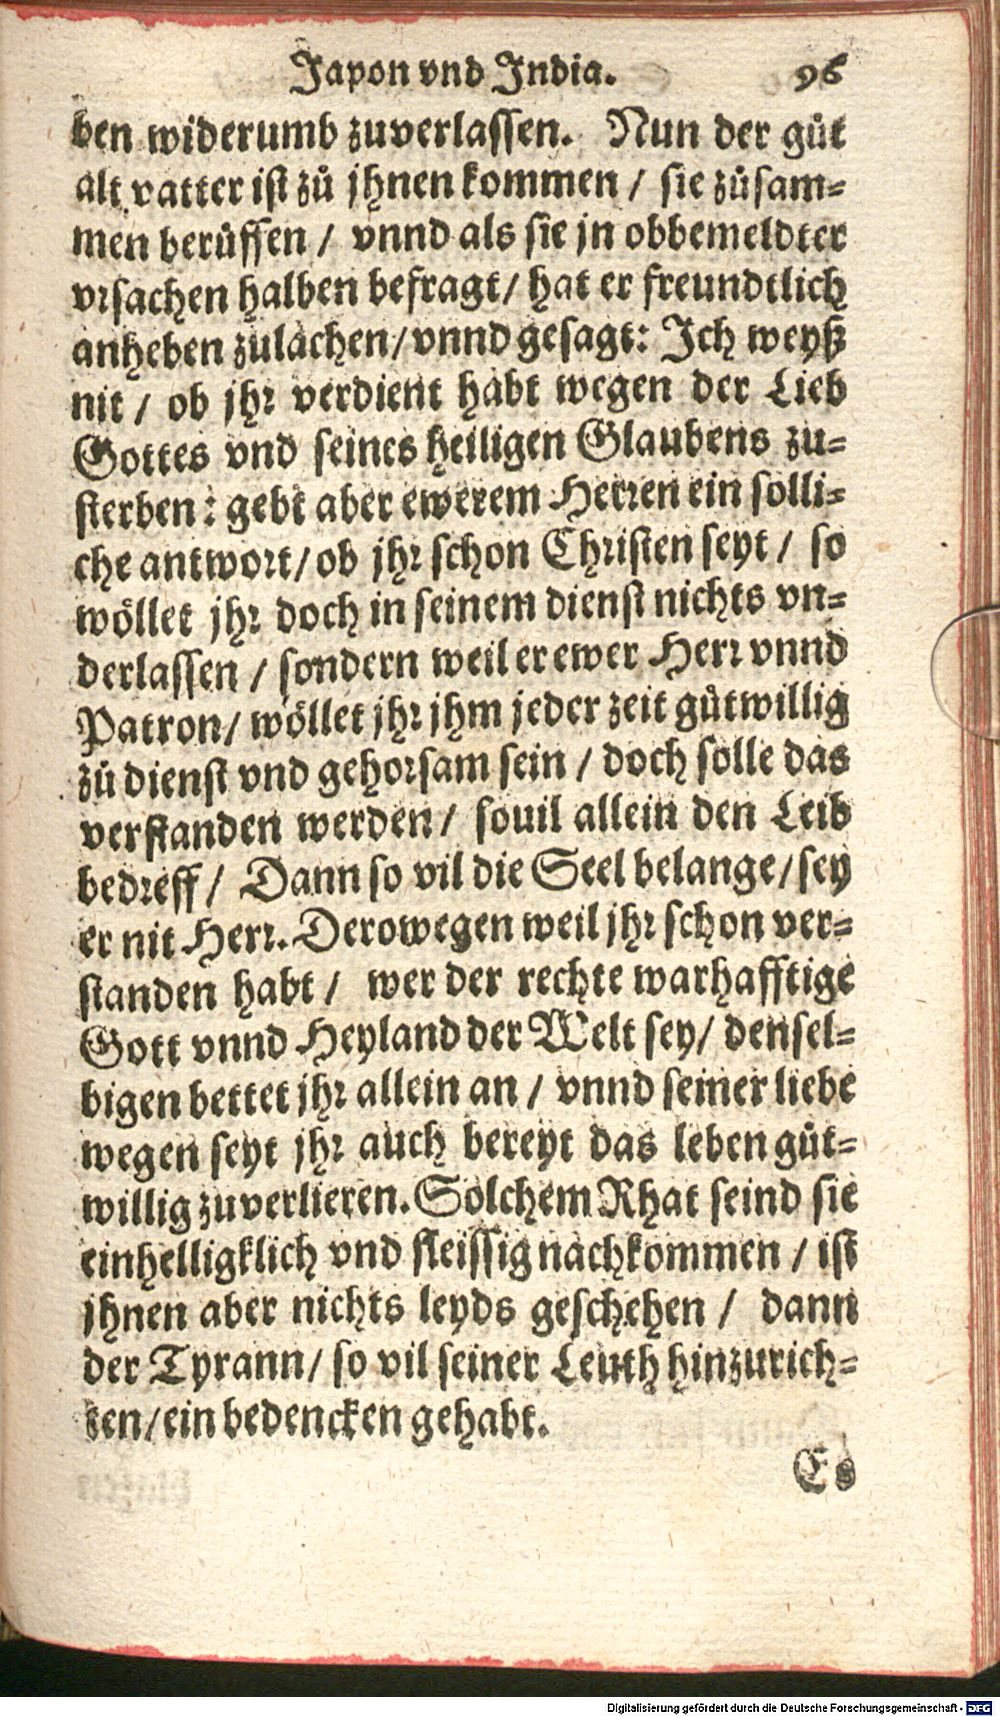 Japon vnd India. 96
ben widerumb zuverlassen. Nun der gůt
alt vatter ist zů jhnen kommen / sie zůsam=
men berůffen / vnnd als sie jn obbemeldter
vrsachen halben befragt / hat er freundtlich
anheben zulachen / vnnd gesagt: Ich weyß
nit / ob jhr verdient habt wegen der Lieb
Gottes vnd seines heiligen Glaubens zu=
sterben: gebt aber ewerem Herren ein solli=
che antwort / ob jhr schon Christen seyt / so
wöllet jhr doch in seinem dienst nichts vn=
derlassen / sondern weil er ewer Herr vnnd
Patron / wöllet jhr jhm jeder zeit gůtwillig
zů dienst vnd gehorsam sein / doch solle das
verstanden werden / souil allein den Leib
bedreff / Dann so vil die Seel belange / sey
er nit Herr. Derowegen weil jhr schon ver=
standen habt / wer der rechte warhafftige
Gott vnnd Heyland der Welt sey / densel=
bigen bettet jhr allein an / vnnd seiner liebe
wegen seyt jhr auch bereyt das leben gůt=
willig zuverlieren. Solchem Rhat seind sie
einhelligklich vnd fleissig nachkommen / ist
jhnen aber nichts leyds geschehen / dann
der Tyrann / so vil seiner Leuth hinzurich=
ten / ein bedencken gehabt.
Es
Digitalisierung gefördert durch die Deutsche Forschungsgemeinschaft - DFG